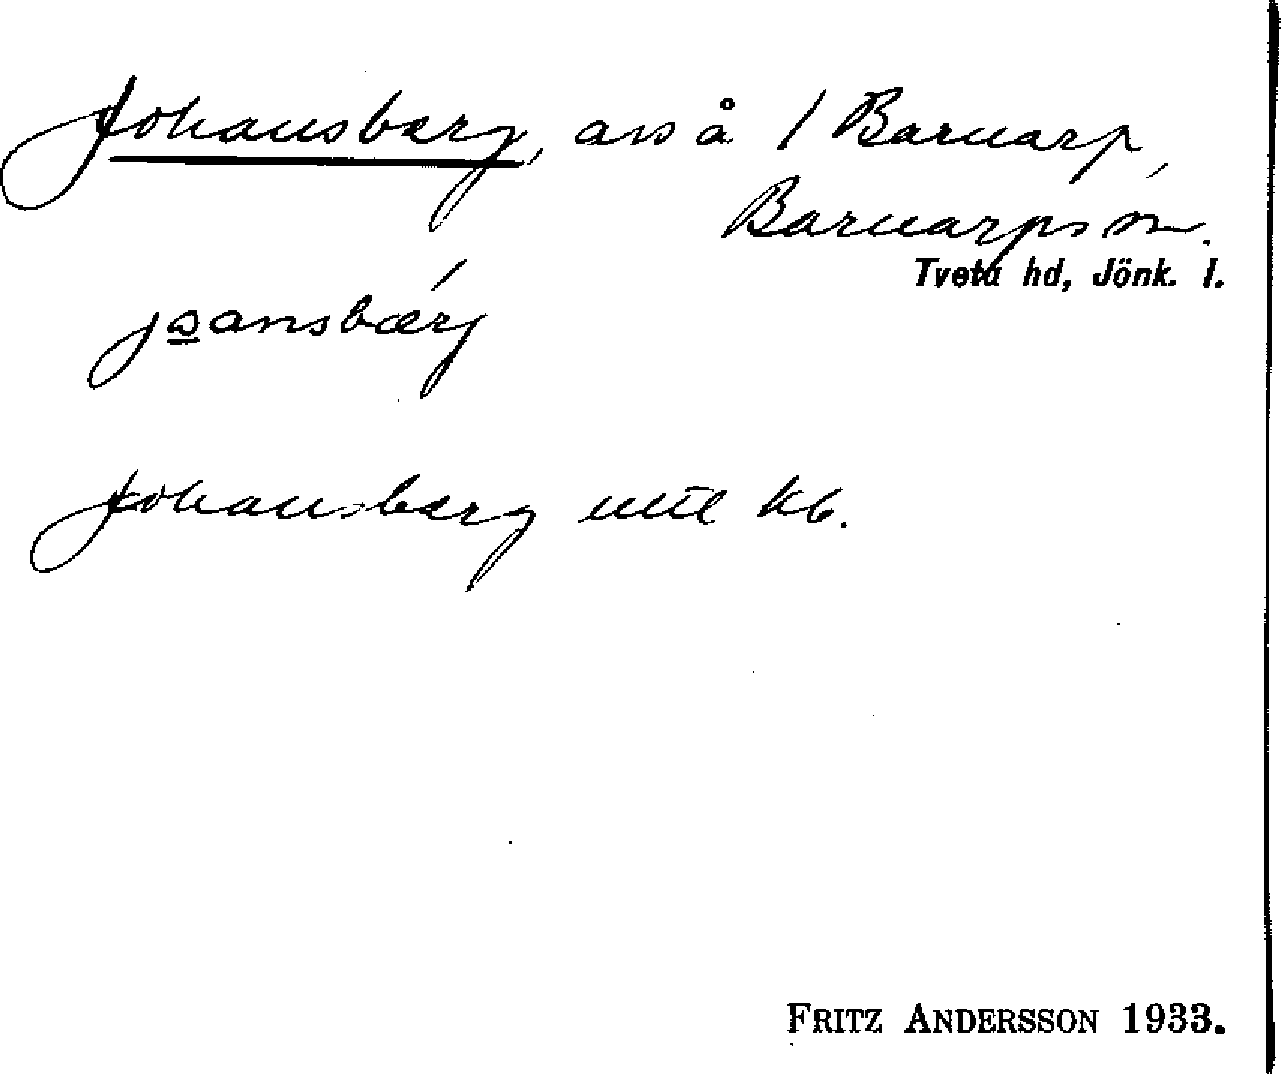 Johansberg, avs å 1 Barnarp,
Barnarps sn.
Tveta hd, Jönk. l.
Johansberg mtl kb.
FRITZ ANDERSSON 1933.